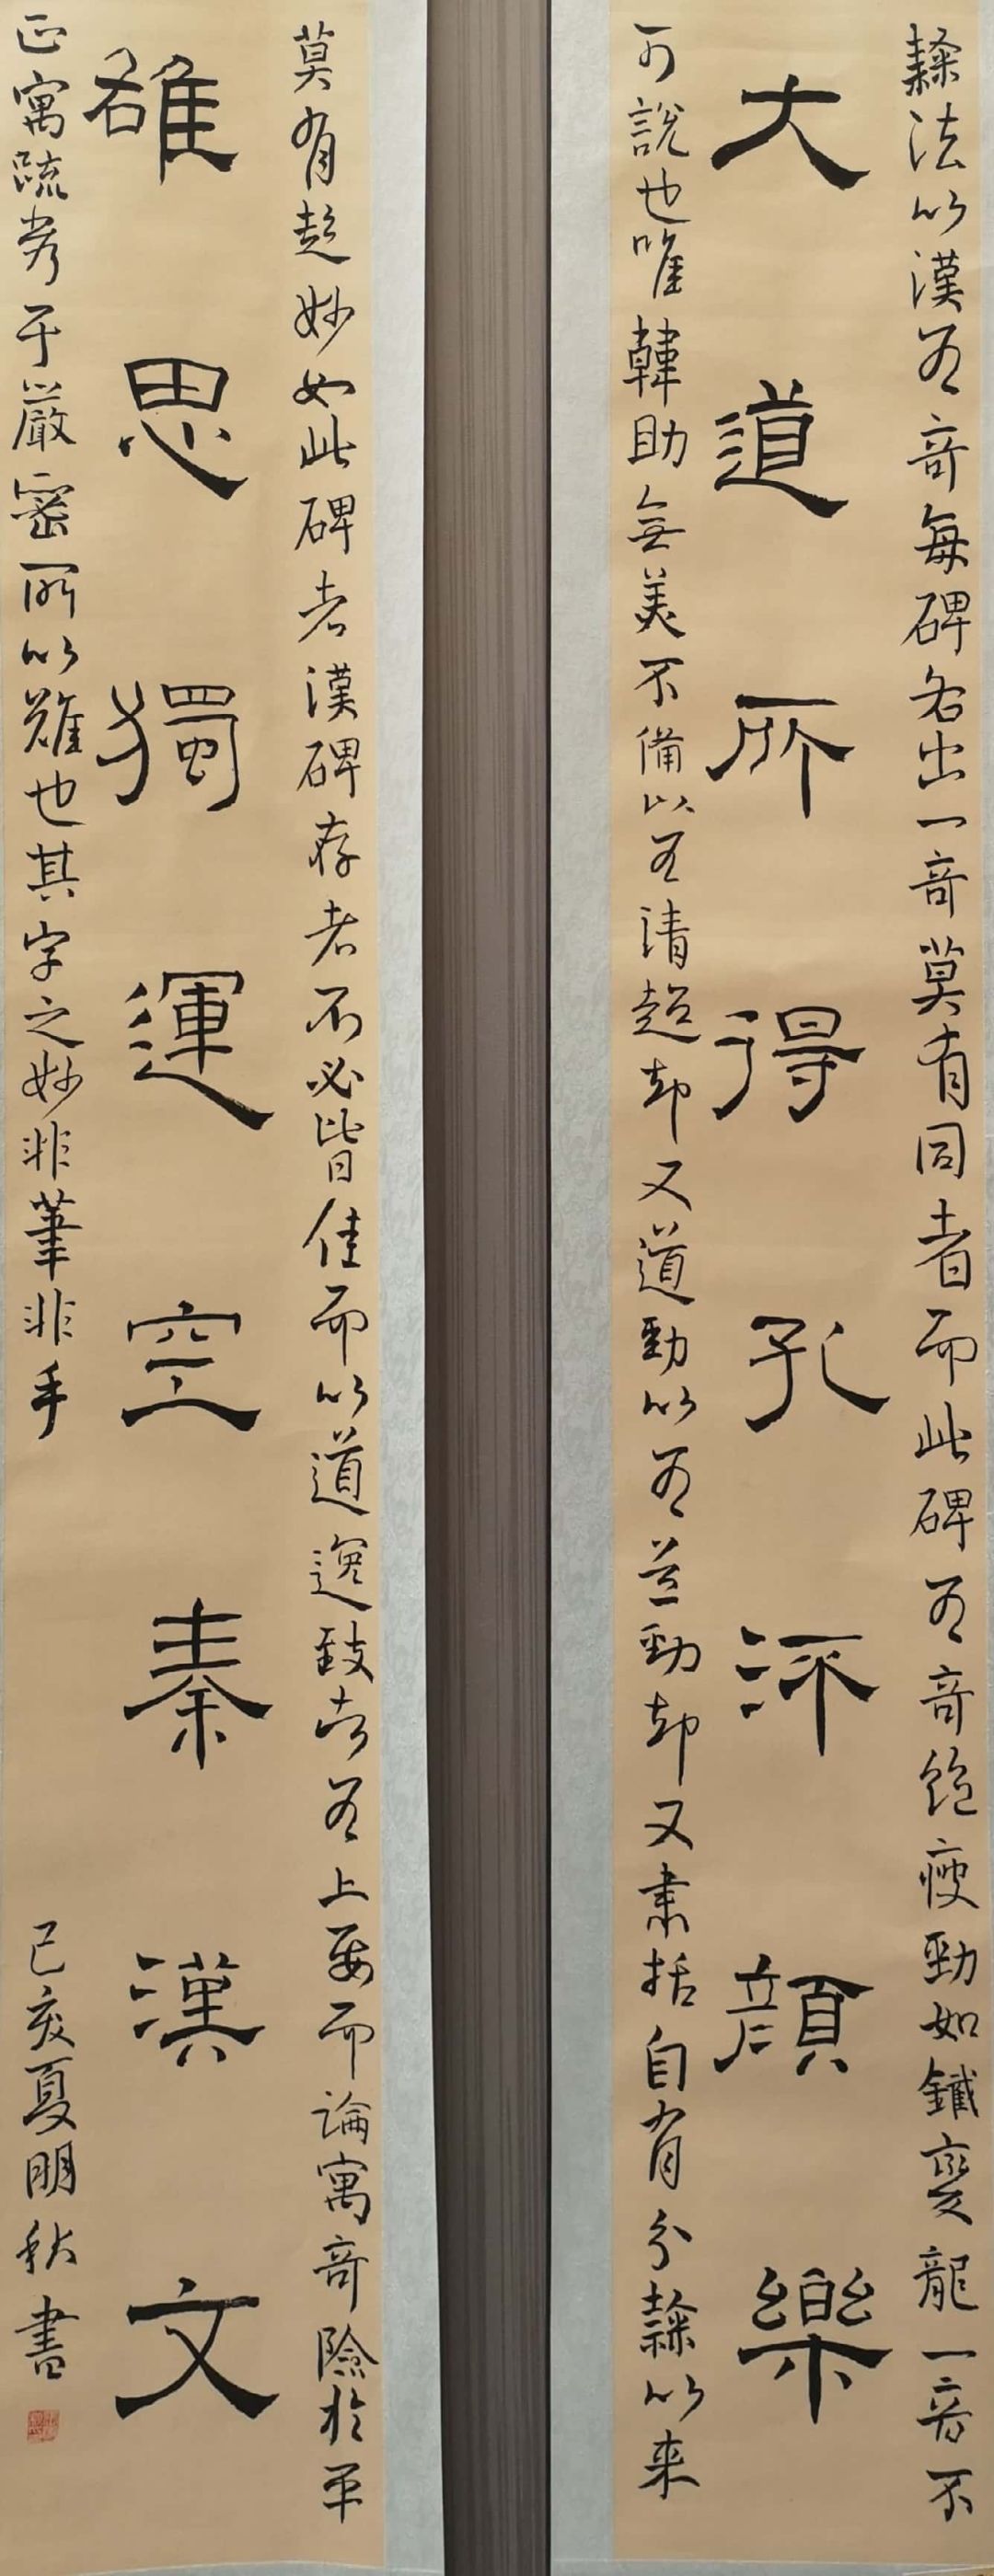 隸法以漢為奇每碑各出一奇莫有同者而此碑為奇絕瘦勁如鐵變龍一奇不
大道所得孔沂顏樂
可說也唯韓助無美不備以為清超却又遒勁以為遒勁却又肅括自有分隸以來
莫有超妙如此碑者漢碑存者不必皆佳而以遒逸致古為上要而論寓奇險於平
雄思獨運空秦漢文
正寓疏秀于嚴密所以難也其字之妙非筆非手
己亥夏明秋書